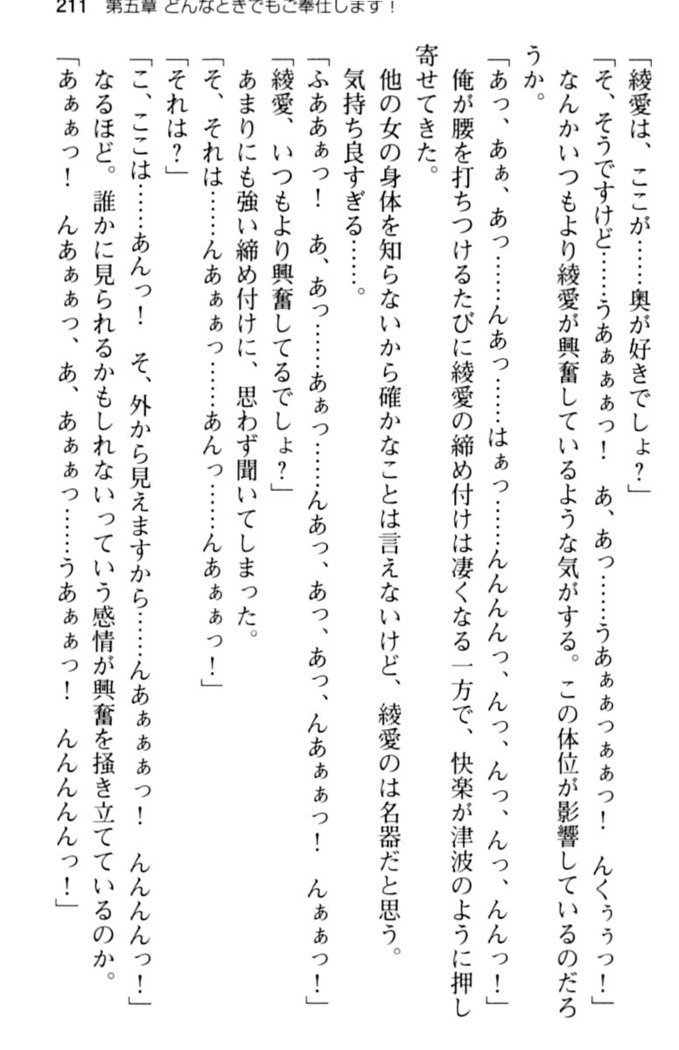 211　第五章 どんなときでもご奉仕します！
「綾愛は、ここが……奥が好きでしょ？」
「そ、そうですけど……うあぁぁぁっ！　あ、あっ……うあぁぁつぁぁっ！　んくぅぅっ！」
なんかいつもより綾愛が興奮しているような気がする。この体位が影響しているのだろ
うか。
「あっ、あぁ、あっ……んあっ……はぁっ……んんんんっ、んっ、んっ、んっ、んんっ！」
俺が腰を打ちつけるたびに綾愛の締め付けは凄くなる一方で、快楽が津波のように押し
寄せてきた。
他の女の身体を知らないから確かなことは言えないけど、綾愛のは名器だと思う。
気持ち良すぎる……。
「ふああぁっ！　あ、あっ……あぁっ……んあっ、あっ、あっ、んあぁぁっ！　んぁぁっ！」
「綾愛、いつもより興奮してるでしょ？」
あまりにも強い締め付けに、思わず聞いてしまった。
「そ、それは……んあぁぁっ……あんっ……んあぁぁっ！」
「それは？」
「こ、ここは……あんっ！　そ、外から見えますから……んあぁぁぁっ！　んんんんっ！」
なるほど。誰かに見られるかもしれないっていう感情が興奮を掻き立てているのか。
「あぁぁっ！　んあぁぁっ、あ、あぁぁっ……うあぁぁっ！　んんんんんっ！」